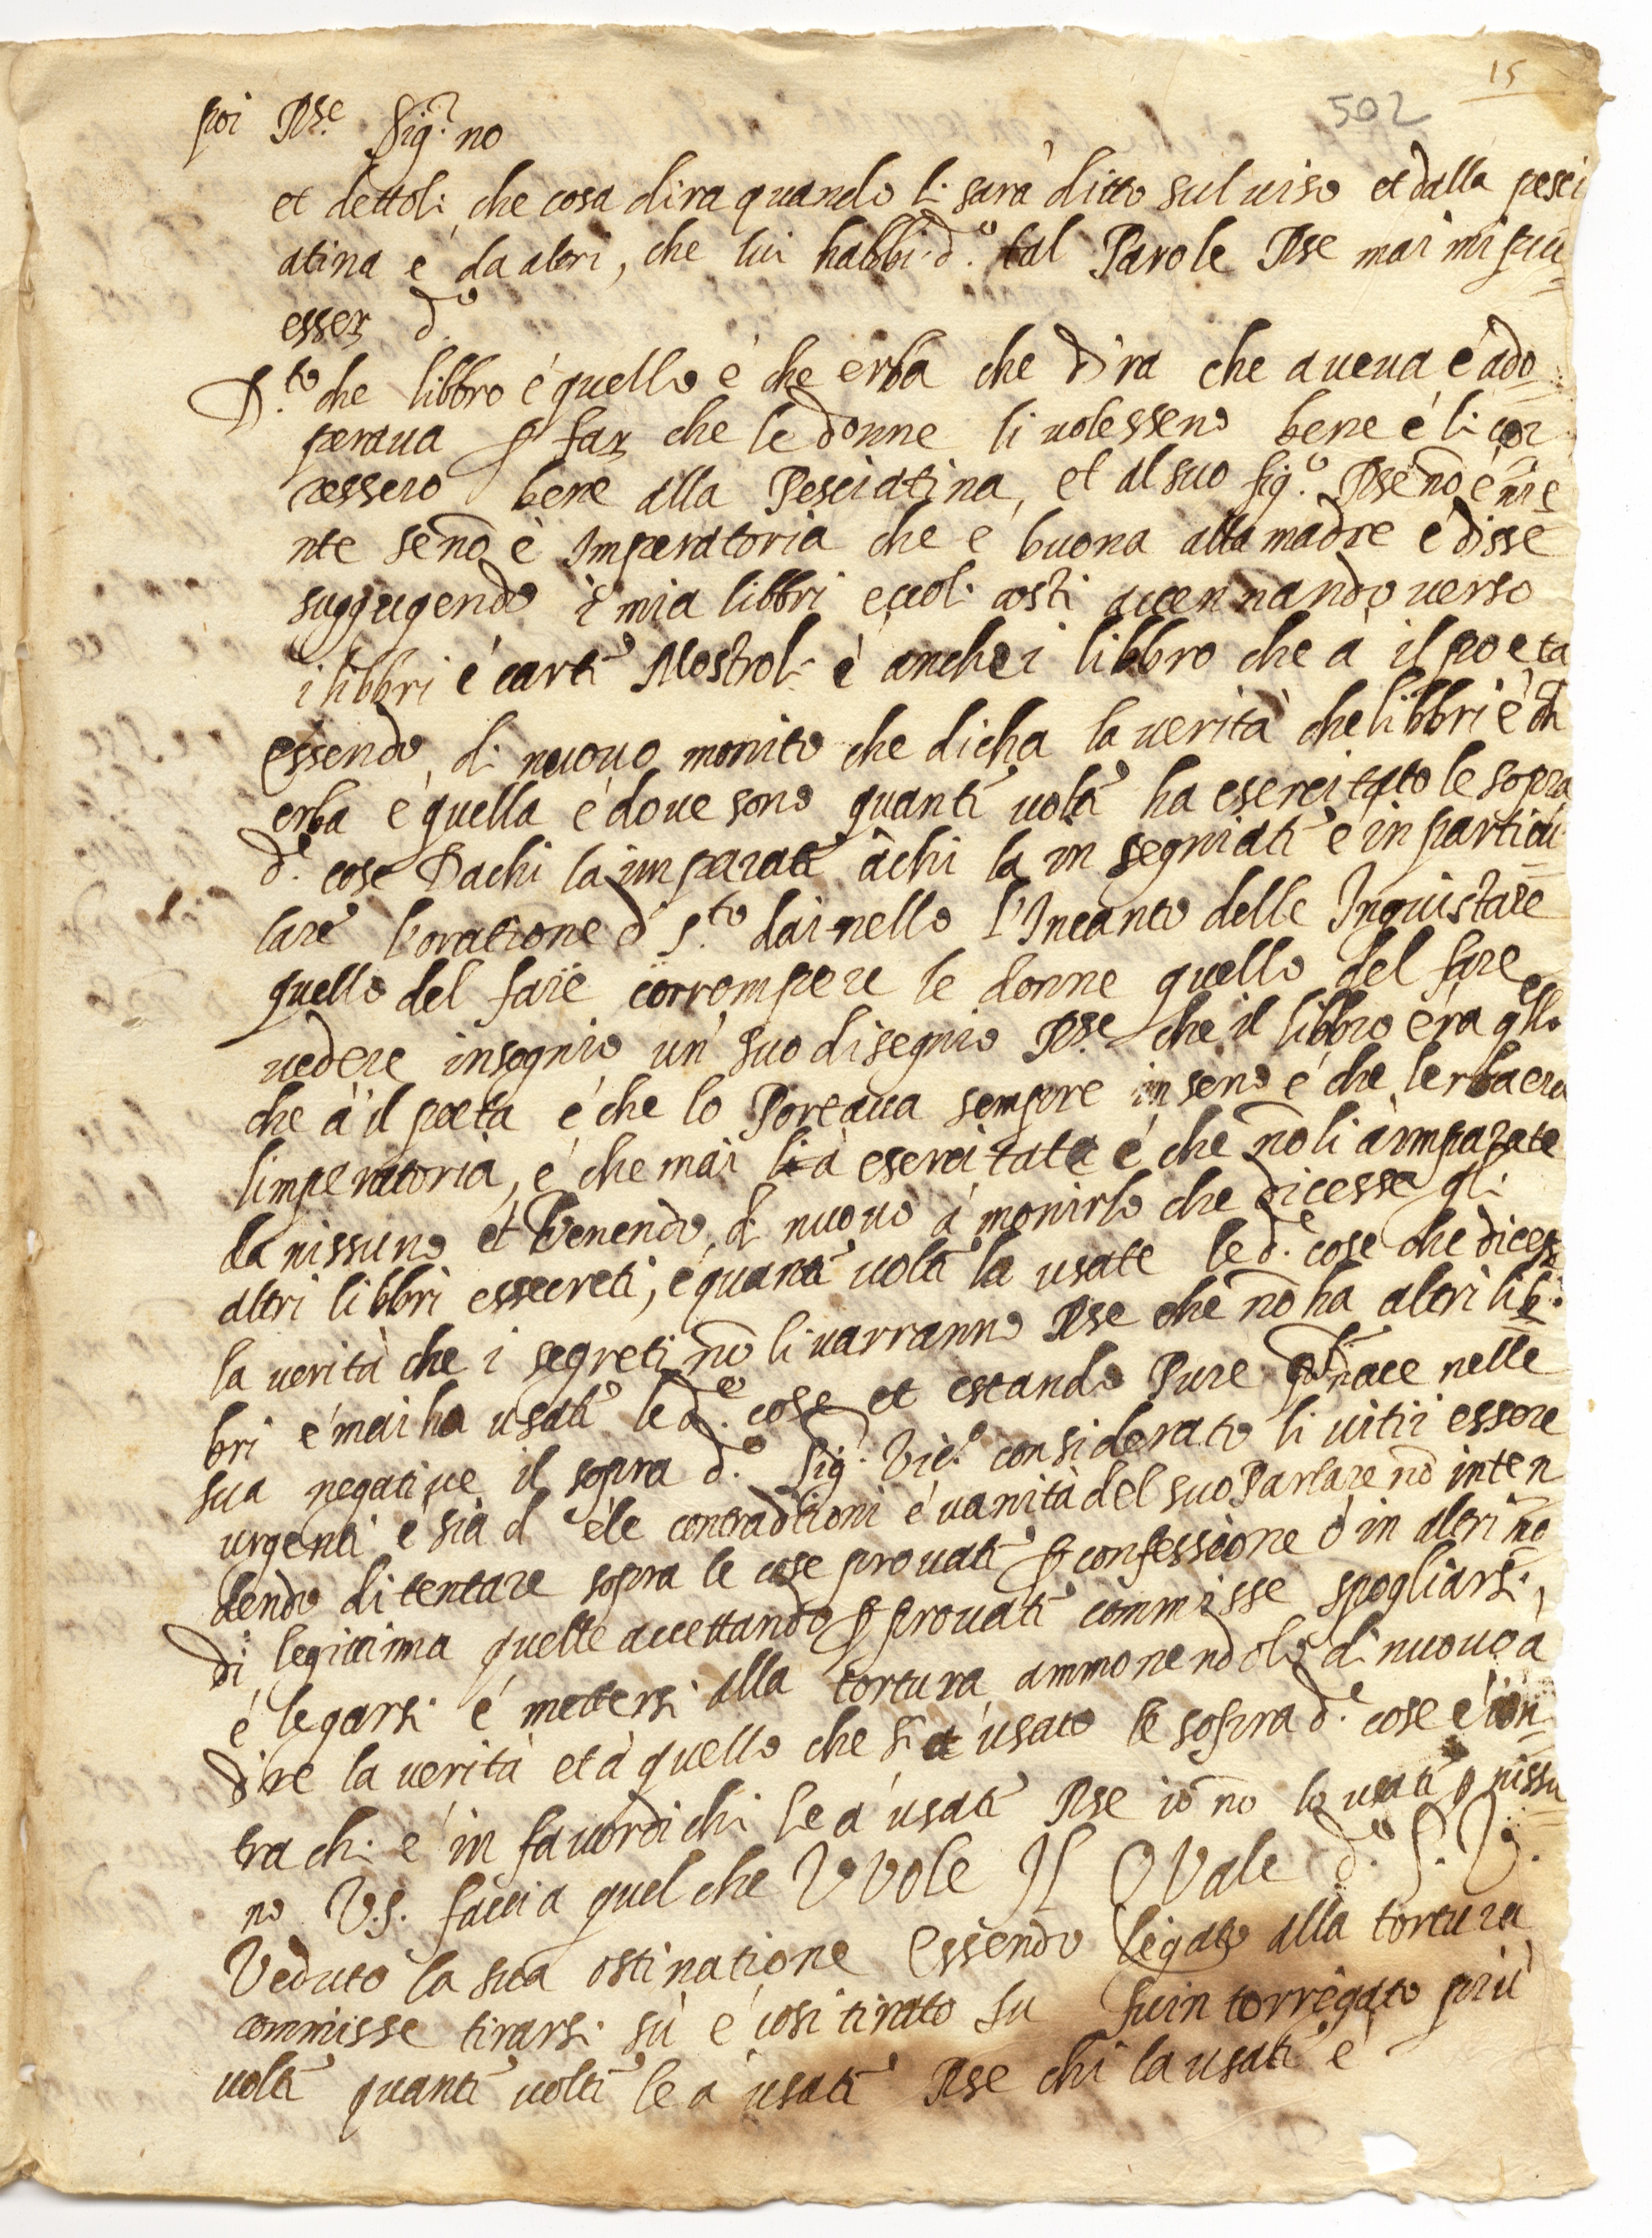 15
502
poi Rse. Sig.r no
et dettoli che cosa dira quando li sarà ditto sul uiso et dalla pesci
atina é da altri, che lui habbi d.o tal Parole Rse mai mi può
esser d.o
D.to che libbro é quello é che erba che dira che aueua é ado
peraua p far che le donne li uolesseno bene é li cor
ressero bene alla Pesciatina, et al suo fig.o Rse nō é nie
nte senō é Imperatoria che é buona alla madre é disse
suggiugendo i mia libbri eccoli costi accennando uerso
i libbri é carti Mostroli é anche i libbro che à il poeta
essendo di nuouo monito che dicha la uerità che libbri é ch
erba é quella é doue sono quanti uolti ha esercitato le sopra
d.e cose Dachi la imparati àchi la in segniati é in particu
lare l'oratione d S.to dainello l'Incanto delle Inguistare
quello del fare corrompere le donne quello del fare
uedere insognio un suo disegnio Rse che il libbro éra qllo
che à il poeta é che lo Portaua sempre in seno é che lerba era
limperatoria, é che mai li à esercitate é che nō li à imparate
da nissuno et Venendo di nuouo à monirlo che dicesse gli
altri libbri essecreti, é quanti uolti la usate le d.e cose che dicesse
la uerità che i segreti nō li uarranno Rse che nō ha altri lib
bri é mai ha usati le d.e cose et estando Pure ptinace nelle
sua negatiue il sopra d.o Sig.r Vic.o considerato li uitii essere
urgenti é sia d éle contradtioni é uanità del suo Parlare nō inten
dendo di tentare sopra le cose prouati p confessione ò in altri mo
di legittima quelle accettando p prouati commisse spogliarsi,
é legarsi é mettersi alla tortura ammonendolo di nuouo à
dire la uerità et à quello che si é usato le sopra d.e cose é con
tra chi é in fauor di chi le à usati Rse io nō lo usati p nissu
no V.S. faccia quel che V Vole Il QVale d.o S. V.
Veduto la sua ostinatione essendo legato alla tortura
commisse tirarsi sù é cosi tirato su fu in terrogato più
uolti quanti uolti le à usati Rse chi la usati é